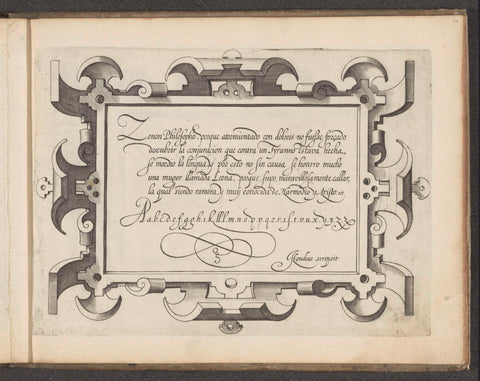 Zenon Philosopho, porque atormentado con dolores no fuesse forçado
descubrir la conjuracion que contra un Tyranno estava hecha,
se mordio la lengua, y por esto no sin causa se honrro mucho
una muger llamada Leona, porque supo maravillosamente callar,
la qual siendo ramera, y muy conocida de Harmodio y Aristo etc
A a b c d e f g g h i k l l l m n d p p q z r s s t v u x y y z z
Hondius scripsit